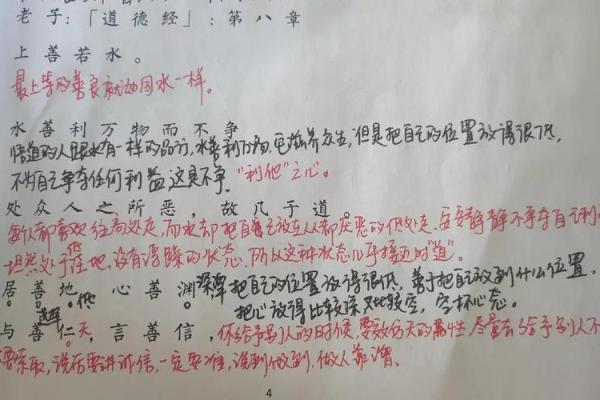 老子:「道德经」:第八章
上善若水。
最上等的善良就如同水一样。
水善利万物而不争
悟道的人跟水有一样的品方,水善利万物,它滋养众生,但是把自己的位置放得很低,
不为自己争夺任何利益,这是不争,"利他"之心。
处众人之所恶,故几于道。
每人都喜欢往高处走,而水却把自己放在人人都厌恶的低处走,安安静静不争夺自己利
坦然处于低地,没有浮躁的状态,所以这种状态几乎接近"道"。
居善地 心善渊 深潭 把自己的位置放得很低,善于把自己放到什么位置,
低 把心放得比较深,对比较空,空杯心态。
与善仁 天,言善信,你给予别人的时候,要效仿天的属性,尽量去给予别人不
要索取,说话要讲诚信,一定要准,说到做到,做人靠谱。
4